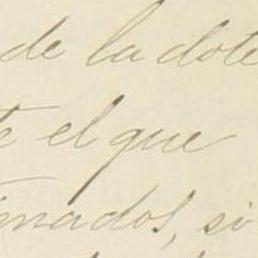 de la dote
te el que
mados, si